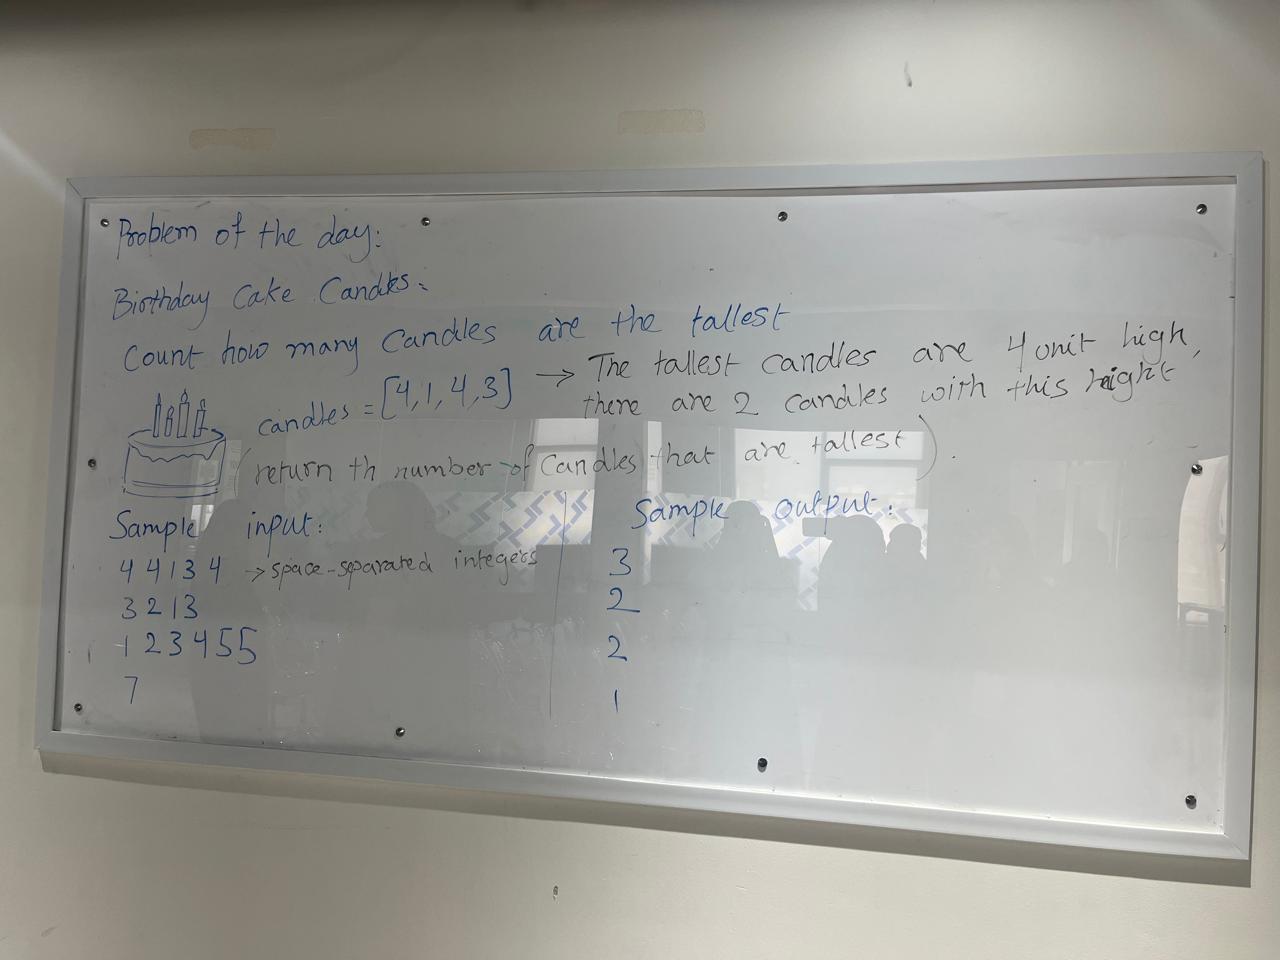 Problem of the day:
Birthday Cake Candles:
Count how many Candles are the tallest
candles = [4,1,4,3] → The tallest candles are 4 unit high,
there are 2 candles with this height
(return th number of Candles that are tallest).
Sample input:
4 4 1 3 4 → space-separated integers
3 2 1 3
1 2 3 4 5 5
7
Sample output:
3
2
2
1